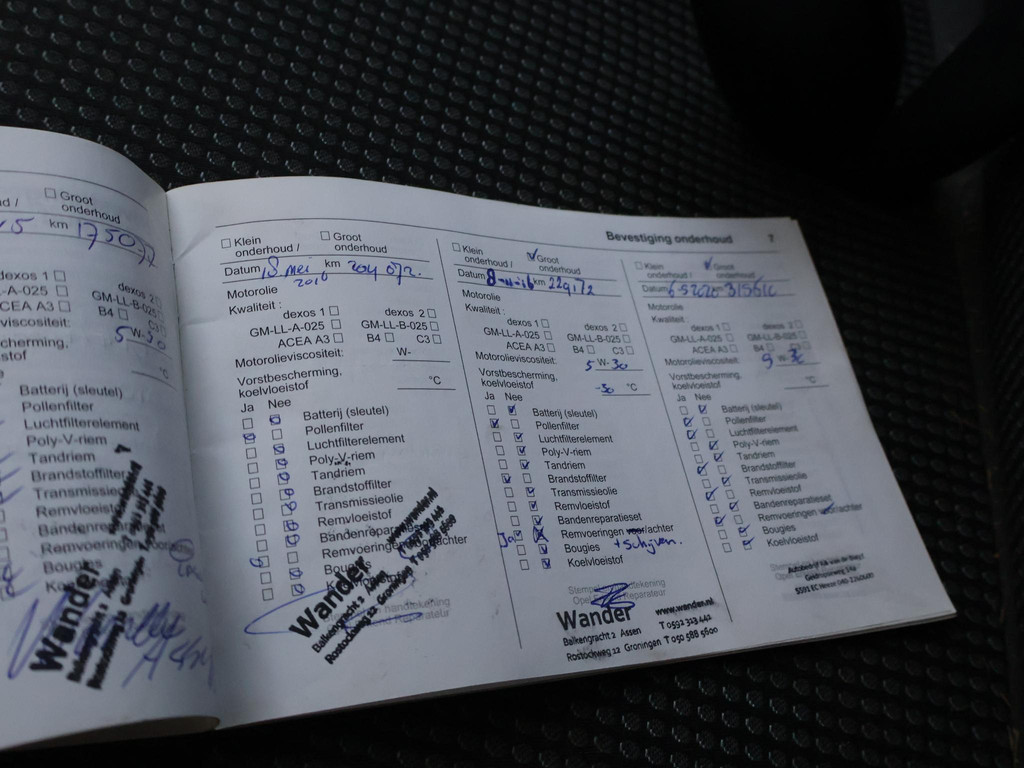 Groot
onderhoud
km 175077
dexos 1
dexos 2
GM-LL-B-025
ACEA A3
B4 C3
5 W-30
°C
Batterij (sleutel)
Pollenfilter
Luchtfilterelement
Poly-V-riem
Tandriem
Brandstoffilter
Transmissieolie
Remvloeistof
Wander
Balkengracht 2 Assen
Bevestiging onderhoud 7
Klein
onderhoud /
Groot
onderhoud
Datum 18 mei km 204 072.
2016
Motorolie
Kwaliteit :
dexos 1 dexos 2
GM-LL-A-025 GM-LL-B-025
ACEA A3 B4 C3
Motorolieviscositeit: W-
Vorstbescherming,
koelvloeistof °C
Ja Nee
Batterij (sleutel)
Pollenfilter
Luchtfilterelement
Poly-V-riem
Tandriem
Brandstoffilter
Transmissieolie
Remvloeistof
Wander
Balkengracht 2 Assen
Rostockweg 22 Groningen T 050 588 5600
Klein
onderhoud /
Groot
onderhoud
Datum 8-11-16 km 229172
Motorolie
Kwaliteit :
dexos 1 dexos 2
GM-LL-A-025 GM-LL-B-025
ACEA A3 B4 C3
Motorolieviscositeit: 5 W-30
Vorstbescherming,
koelvloeistof -30 °C
Ja Nee
Batterij (sleutel)
Pollenfilter
Luchtfilterelement
Poly-V-riem
Tandriem
Brandstoffilter
Transmissieolie
Remvloeistof
Bandenreparatieset
Ja Remvoeringen voor/achter
Bougies + schijven.
Koelvloeistof
Wander www.wander.nl
Balkengracht 2 Assen T 0592 323 442
Rostockweg 22 Groningen T 050 588 5600
Klein
onderhoud /
Groot
onderhoud
Datum 6-5-2020
Motorolie
Kwaliteit :
dexos 1 dexos 2
GM-LL-A-025 GM-LL-B-025
ACEA A3 B4 C3
Motorolieviscositeit:
Vorstbescherming,
koelvloeistof °C
Ja Nee
Batterij (sleutel)
Pollenfilter
Luchtfilterelement
Poly-V-riem
Tandriem
Brandstoffilter
Transmissieolie
Remvloeistof
Bandenreparatieset
Remvoeringen voor/achter
Bougies
Koelvloeistof